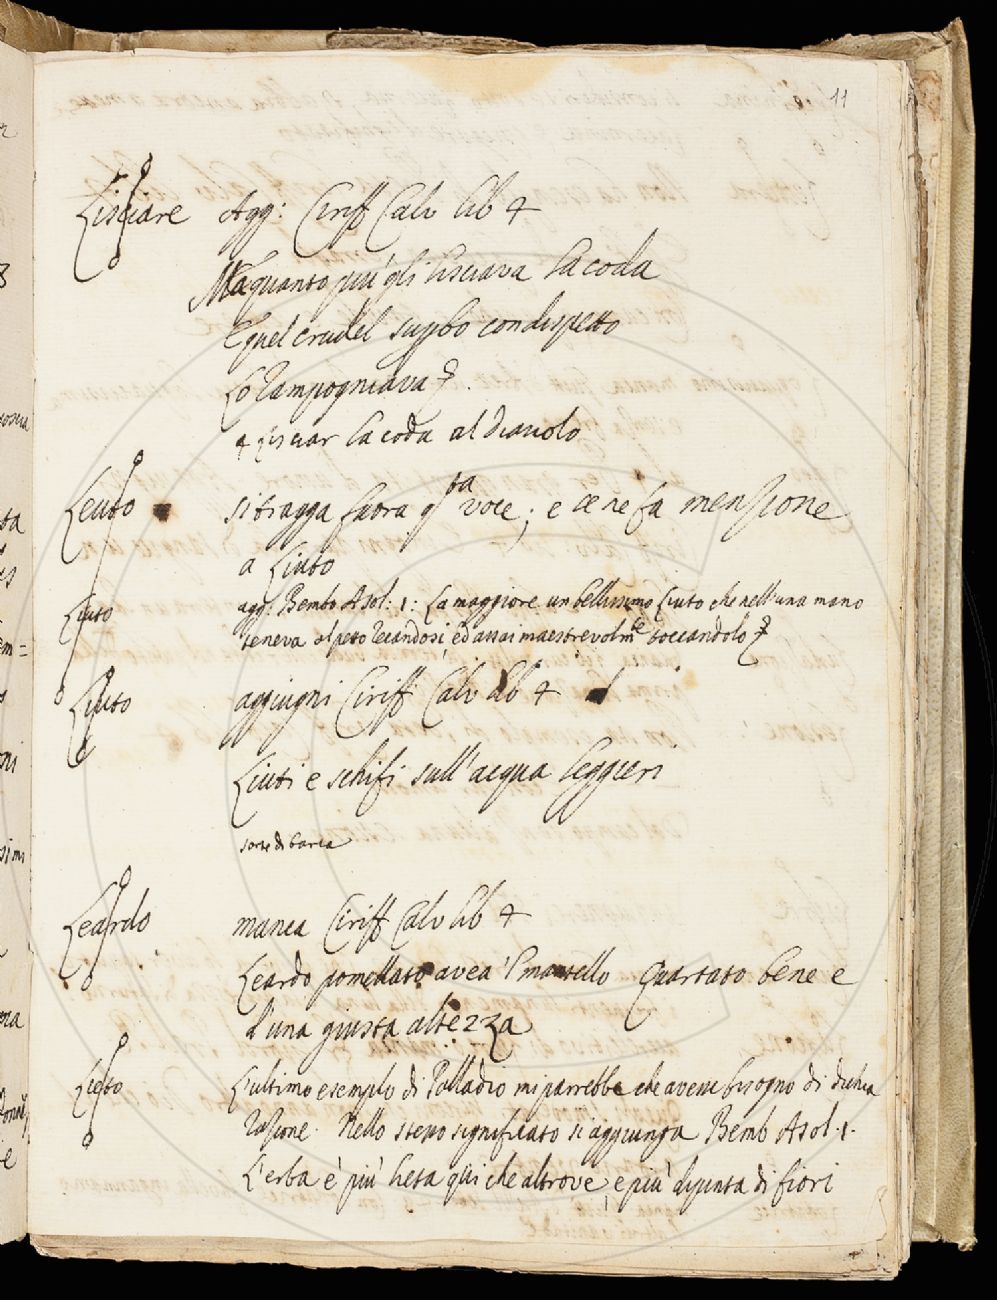 11
Lisciare Agg: Ciriff Calv lib 4
Ma quanto più gli lisciava la coda
E quel crudel superbo con dispetto
Lo Zampogniava
+ Lisciar la coda al Diavolo
Leuto si tragga fuora qsta voce; e ce ne fa menzione
a Liuto
Liuto agg: Bembo Asol: 1: La maggiore un bellissimo Liuto che nell'una mano
teneva al petto recandosi, ed assai maestrevolmte toccandolo
Liuto aggiugni Ciriff Calv lib 4
Liuti e schifi sull'acqua leggieri
sorte di barca
Leardo manca Ciriff Calv lib 4
Leardo pomellato avea 'l mantello Quartato bene e
d'una giusta altezza
Lieto L'ultimo esemplo di Palladio mi parrebbe che avesse bisogno di dichia
razione. Nello stesso significato si aggiunga Bemb Asol. 1.
L'erba è più lieta qui che altrove, e più dipinta di fiori